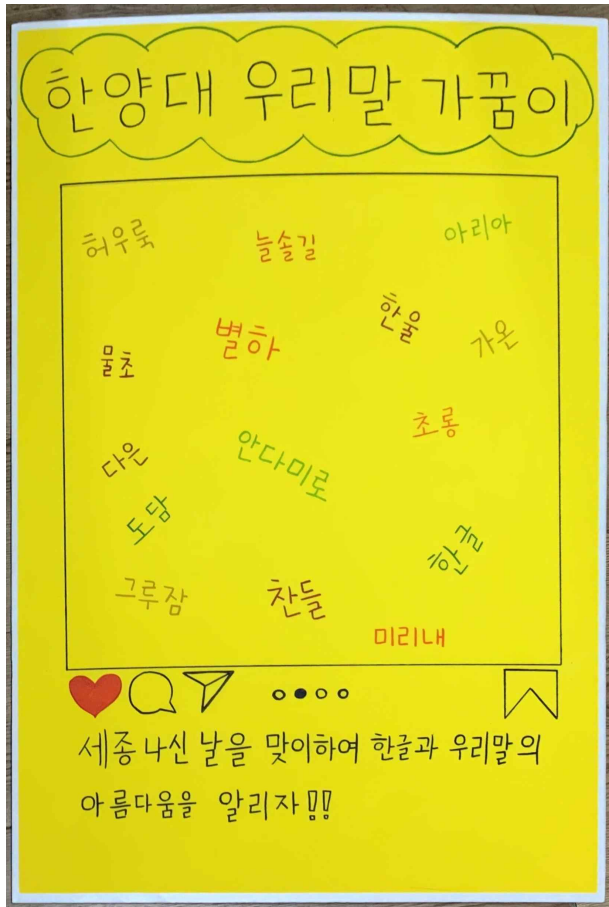 한양대 우리말 가꿈이
허우룩 늘솔길 아리아
물초 별하 한울 가온
초롱
다은 안다미로
도담 한글
그루잠 찬들
미리내
세종 나신 날을 맞이하여 한글과 우리말의
아름다움을 알리자!!